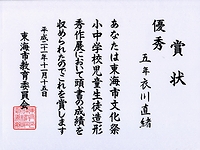 賞状
優秀
五年 衣川直緒
あなたは東海市文化祭
小中学校児童生徒造形
秀作展において頭書の成績を
収められたのでこれを賞します
平成二十一年十一月十五日
東海市教育委員会